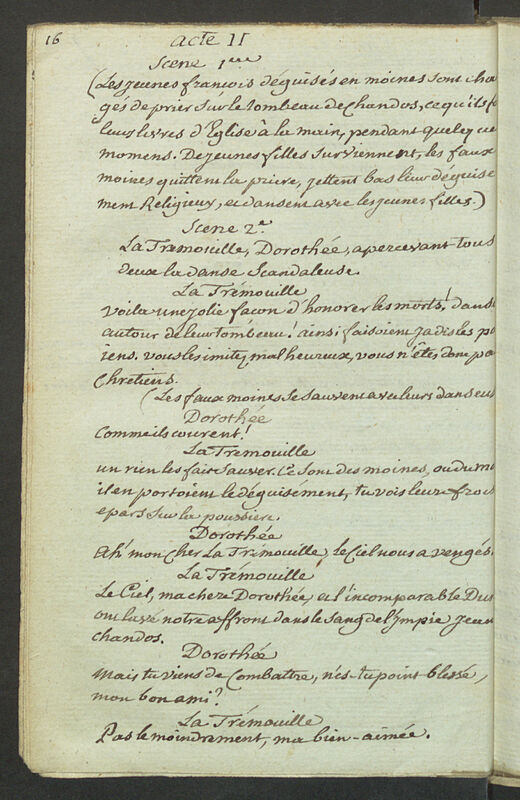 16
acte II
Scene 1ere
(Les jeunes francois déguisés en moines sont char
gés de prier sur le tombeau de Chandos, ce qu'ils
leurs livres d'Eglise à la main, pendant quelque
momens. De jeunes filles surviennent, les faux
moines quittent la priere, jettent bas leur déguise
ment Religieux, et dansent avec les jeunes filles.)
Scene 2e
La Trémouille, Dorothée, apercevant tous
deux la danse Scandaleuse.
La Trémouille
voila une jolie facon d'honorer les morts! danse
autour de leur tombeau! ainsi faisoient jadis les pa
iens. vous les imitez, malheureux, vous n'êtes donc pa
Chrétiens.
(Les faux moines se sauvent avec leurs danseus
Dorothée
Comme ils courent!
La Trémouille
un rien les fait sauver. Ce sont des moines, ou du mo
ils en portoient le déguisément, tu vois leurs frocs
epars sur la poussiere.
Dorothée
Ah! mon cher La Trémouille, le Ciel nous a vengés.
La Trémouille
Le Ciel, ma chere Dorothée, et l'incomparable Dun
ont lavé notre affront dans le sang de l'ympie Jean
chandos.
Dorothée
Mais tu viens de Combattre, n'es-tu point blessé,
mon bon ami?
La Trémouille
Pas le moindrement, ma bien-aimée.